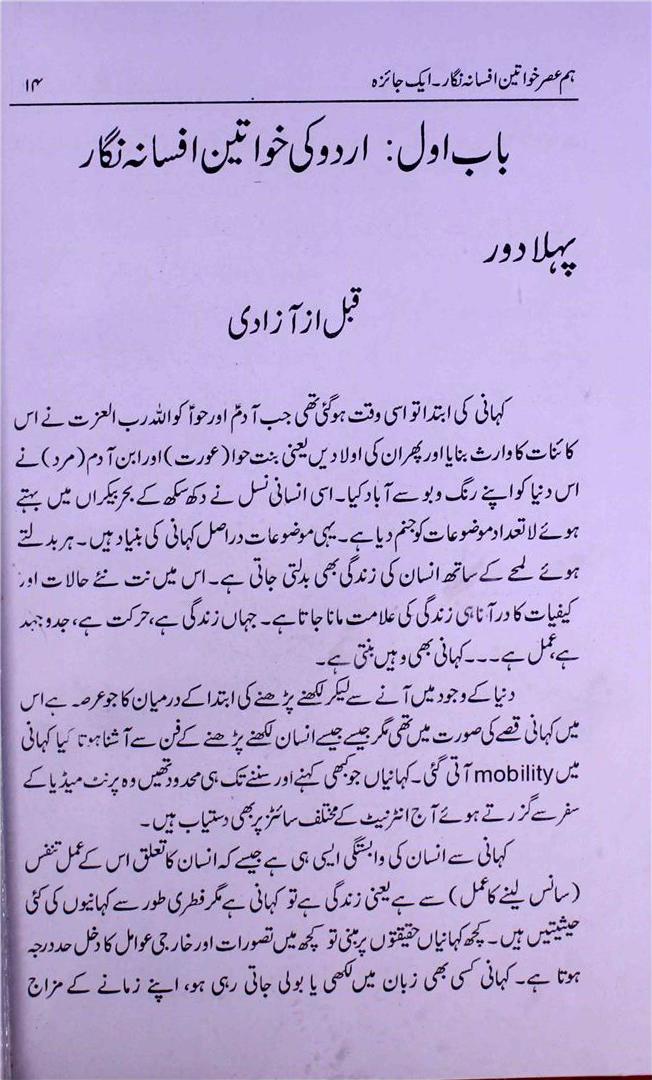 ہم عصر خواتین افسانہ نگار۔ ایک جائزہ ۱۴
باب اول: اردو کی خواتین افسانہ نگار
پہلا دور
قبل از آزادی
کہانی کی ابتدا تو اسی وقت ہوگئی تھی جب آدمؑ اور حواؑ کو اللہ رب العزت نے اس
کائنات کا وارث بنایا اور پھر ان کی اولادیں یعنی بنت حوا (عورت) اور ابن آدم (مرد) نے
اس دنیا کو اپنے رنگ و بو سے آباد کیا۔ اسی انسانی نسل نے دکھ سکھ کے بحر بیکراں میں بہتے
ہوئے لاتعداد موضوعات کو جنم دیا ہے۔ یہی موضوعات دراصل کہانی کی بنیاد ہیں۔ ہر بدلتے
ہوئے لمحے کے ساتھ انسان کی زندگی بھی بدلتی جاتی ہے۔ اس میں نت نئے حالات اور
کیفیات کا در آنا ہی زندگی کی علامت مانا جاتا ہے۔ جہاں زندگی ہے، حرکت ہے، جدوجہد
ہے، عمل ہے۔۔۔ کہانی بھی وہیں بنتی ہے۔
دنیا کے وجود میں آنے سے لیکر لکھنے پڑھنے کی ابتدا کے درمیان کا جو عرصہ ہے اس
میں کہانی قصے کی صورت میں تھی مگر جیسے جیسے انسان لکھنے پڑھنے کے فن سے آشنا ہوتا گیا کہانی
میں mobility آتی گئی۔ کہانیاں جو کبھی کہنے اور سننے تک ہی محدود تھیں وہ پرنٹ میڈیا کے
سفر سے گزرتے ہوئے آج انٹرنیٹ کے مختلف سائٹز پر بھی دستیاب ہیں۔
کہانی سے انسان کی وابستگی ایسی ہی ہے جیسے کہ انسان کا تعلق اس کے عمل تنفس
(سانس لینے کا عمل) سے ہے یعنی زندگی ہے تو کہانی ہے مگر فطری طور سے کہانیوں کی کئی
حیثیتیں ہیں۔ کچھ کہانیاں حقیقتوں پر مبنی تو کچھ میں تصورات اور خارجی عوامل کا دخل حد درجہ
ہوتا ہے۔ کہانی کسی بھی زبان میں لکھی یا بولی جاتی رہی ہو، اپنے زمانے کے مزاج